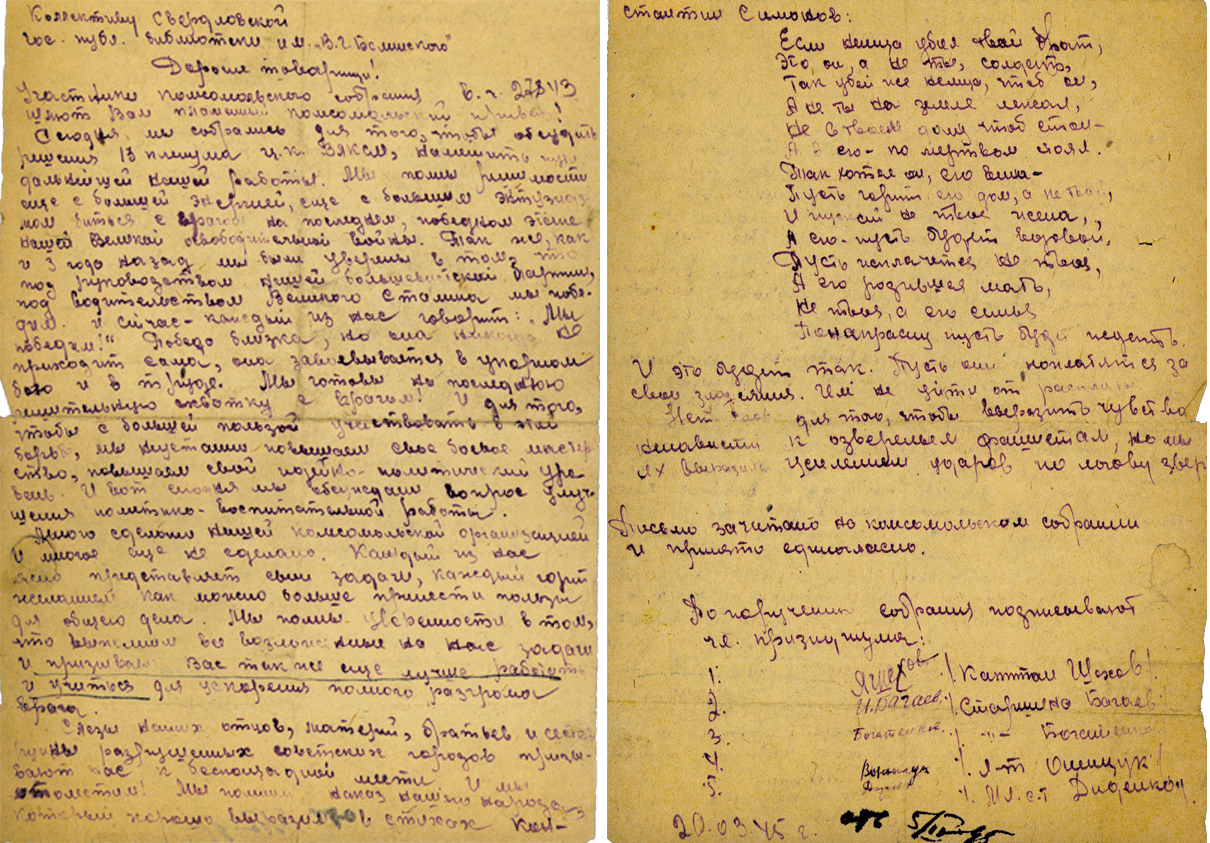 Коллективу Свердловской
гос. публ. библиотеки им. „В.Г. Белинского"
Дорогие товарищи!
Участники комсомольского собрания в.ч. 27843
шлют Вам пламенный комсомольский привет!
Сегодня мы собрались для того, чтобы обсудить
решения 13 пленума ц.к. ВЛКСМ, наметить пути
дальнейшей нашей работы. Мы полны решимости
еще с большей энергией, еще с большим энтузиаз-
мом биться с врагом на последнем, победном этапе
нашей Великой освободительной войны. Так же, как
и 3 года назад мы были уверены в том, что
под руководством нашей большевистской партии,
под водительством Великого Сталина мы побе-
дим. и сейчас - каждый из нас говорит: „Мы
победим!" Победа близка, но она никогда не
приходит сама, она завоевывается в упорном
бою и в труде. Мы готовы на последнюю
решительную схватку с врагом! И для того,
чтобы с большей пользой участвовать в этой
борьбе, мы повышаем свое боевое мастер-
ство, повышаем свой идейно-политический уро-
вень. И вот сегодня мы обсуждали вопрос улуч-
шения политико-воспитательной работы.
Много сделано нашей комсомольской организацией
и многое еще не сделано. Каждый из нас
ясно представляет свои задачи, каждый горит
желанием как можно больше принести пользы
для общего дела. Мы полны уверенности в том,
что выполним все возложенные на нас задачи
и призываем Вас так же еще лучше работать
и учиться для ускорения полного разгрома
врага.
Слезы наших отцов, матерей, братьев и сестер
руины разрушенных советских городов призы-
вают нас к беспощадной мести. И мы
отомстим! Мы помним наказ нашего народа,
который хорошо выразил в стихах Кон-
стантин Симонов:
Если немца убил твой брат,
Это он, а не ты, солдат,
Так убей же немца, чтоб он,
А не ты на земле лежал,
Не в твоем дому чтоб стон-
А в его- по мертвом стоял.
Так хотел он, его вина-
Пусть горит его дом, а не твой,
И пускай не твоя жена,
А его- пусть будет вдовой,
Пусть исплачется не твоя,
А его родившая мать,
Не твоя, а его семья
Понапрасну пусть будет ждать.
И это будет так. Пусть они поплатятся за
свои злодеяния. Им не уйти от расплаты
Нет слов для того, чтобы выразить чувства
ненависти к озверелым фашистам, но мы
их выразим усилением ударов по логову зверя
Письмо зачитано на комсомольском собрании
и принято единогласно.
По поручению собрания подписывают
чл. президиума:
1. /Капитан Шехов/
2. Н. Багаев. /Старшина Багаев/
3. Богатенков. / -"-
4. /Л-т Онищук/
5. /Мл. с-т Диденко/.
20.03.45 г.